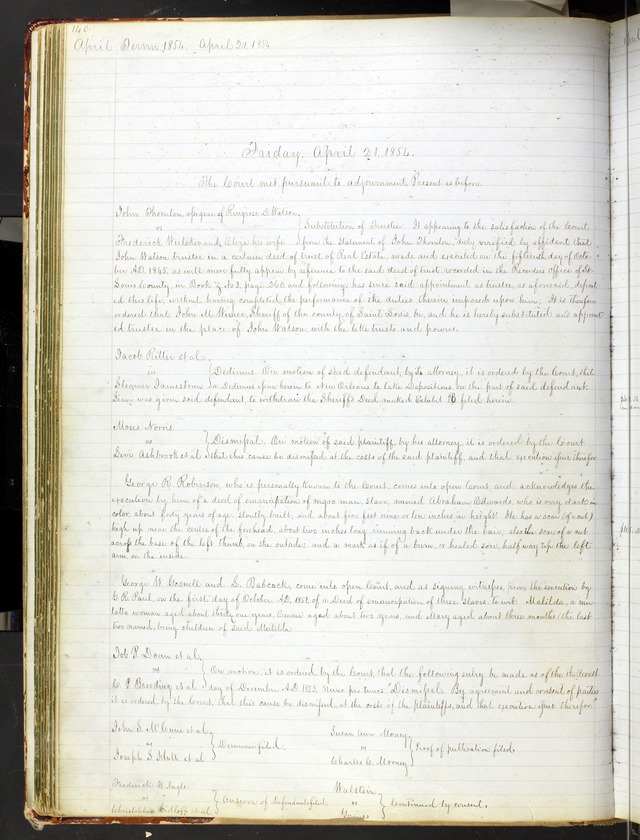 140
April Term, 1854. April 21, 1854
Friday, April 21, 1854.
The Court met pursuant to adjournment Present as before.
John Thornton, assignee of Ringrose D Watson,
vs
Frederick and Eliza his wife
Substitution of Trustee. It appearing to the satisfaction of the Court,
from the statement of John Thornton, duly verified by affidavit that
John Watson trustee in a certain deed of trust of Real Estate, made and executed on the fifteenth day of Octo-
ber A.D. 1845, as will more fully appear by reference to the said deed of trust recorded in the Recorders Office of St.
Louis County, in Book No 3, page 260 and following, has since said appointment as trustee, as aforesaid, depart
ed this life, without having completed the performance of the duties therein imposed upon him; It is therefore
ordered that John M Wimer, Sheriff of the county of Saint Louis be, and he is hereby substituted and appoint
ed trustee in the place of John Watson, with the like trusts and powers.
Jacob Ritter et al.
vs
Steamer Jamestown
Dedimus. On motion of said defendant, by its attorney, it is ordered by the Court, that
a Dedimus issue herein to New Orleans to take depositions on the part of said defendant.
Leave was given said defendant, to withdraw the Sheriff's Deed marked Exhibit B filed herein.
Moses Norris
vs
Levi Ashbrook et al
Dismissal. On motion of said plaintiff, by his attorney, it is ordered by the Court
that this cause be dismissed at the costs of the said plaintiff, and that execution issue therefor.
George R. Robinson, who is personally known to the Court, comes into open Court and acknowledges the
execution by him of a deed of emancipation of negro man, slave, named Abraham Edwards, who is very dark in
color, about forty years of age, stoutly built, and about five feet nine or ten inches in height. He has a scar (of a cut)
high up near the centre of the forehead, about two inches long, running back under the hair, also the scar of a cut
across the base of the left thumb, on the outside; and a mark as if of a burn, or healed sore, half way up the left
arm, on the inside.
George W. Cosnell and S. Babcock, come into open Court, and as signing witnesses, prove the execution by
G R. Paul, on the first day of October A.D. 1851, of a Deed of emancipation of three slaves, to wit; Matilda, a mu-
latto woman, aged about thirty one years, Emma aged about two years, and Mary aged about three months (the last
two named, being children of said Matilda.
Job P. Doan et al,
vs
et al
On motion, it is ordered by the Court, that the following entry be made as of the thirteenth
day of December A.D 1853, nunc pro tunc, Dismissal. By agreement and consent of parties
it is ordered by the Court, that this cause be dismissed, at the costs of the plaintiffs, and that execution issue therefor.
John S. McCune et al,
vs
Joseph S. Hull et al
Demurrer filed.
Susan Ann Money,
vs
Charles C. Money
Proof of publication filed.
Frederick W. Ingle
vs
Christopher et al
Answer of Defendant filed
Walstein
vs
Gaines
Continued by consent.